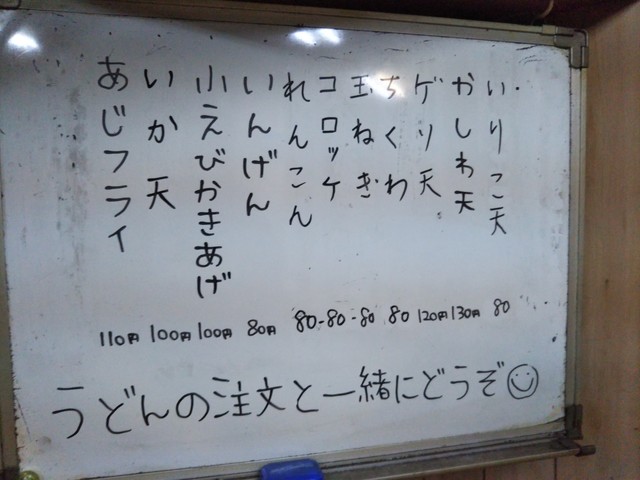 いりこ天
かしわ天
ゲソ天
ちくわ
玉ねぎ
コロッケ
れんこん
いんげん
小えびかきあげ
いか天
あじフライ
110円 100円 100円 80円 80-80-80 80 120円 130円 80
うどんの注文と一緒にどうぞ☺